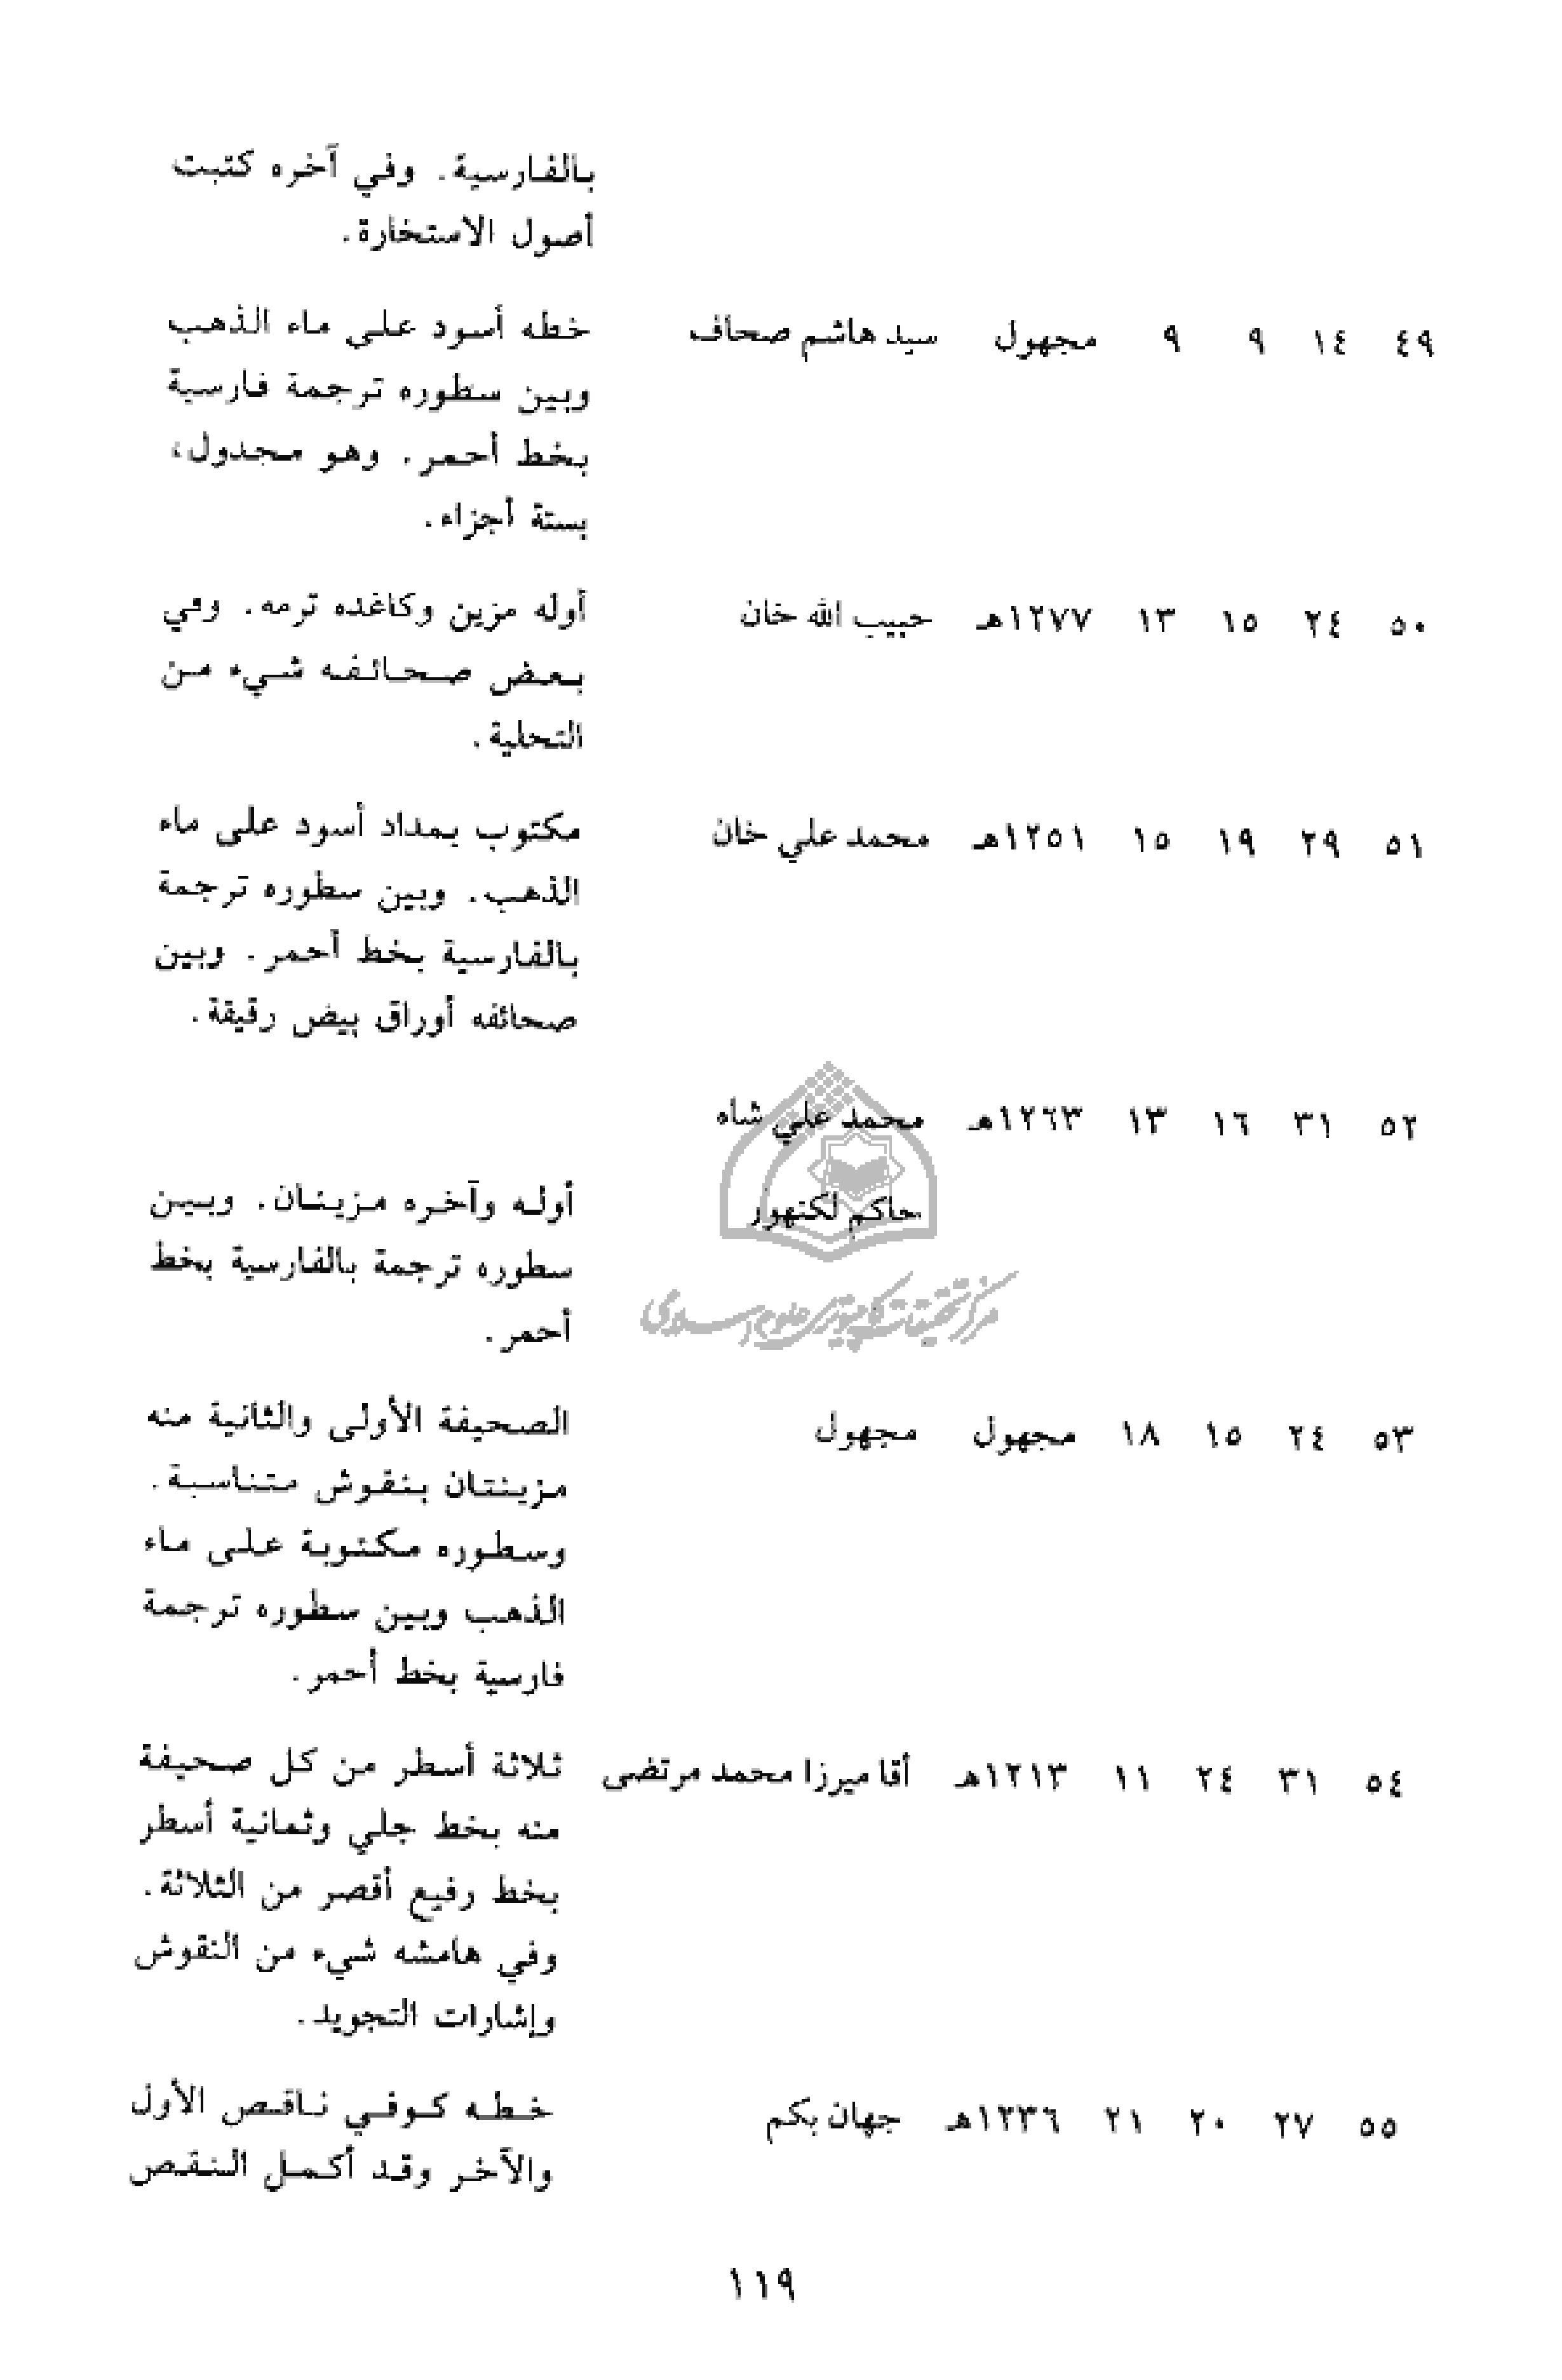 بالفارسية. وفي آخره كتبت
أصول الاستخارة.
٤٩ ١٤ ٩ ٩ مجهول سيد هاشم صحاف خطه أسود على ماء الذهب
وبين سطوره ترجمة فارسية
بخط أحمر. وهو مجدول،
بستة أجزاء.
٥٠ ٢٤ ١٥ ١٣ ١٢٧٧هـ حبيب الله خان أوله مزين وكاغده ترمه. وفي
بعض صحائفه شيء من
التحلية.
٥١ ٢٩ ١٩ ١٥ ١٢٥١هـ محمد علي خان مكتوب بمداد أسود على ماء
الذهب. وبين سطوره ترجمة
بالفارسية بخط أحمر. وبين
صحائفه أوراق بيض رقيقة.
٥٢ ٣١ ١٦ ١٣ ١٢٦٣هـ محمد علي شاه
حاكم لكنهور أوله وآخره مزينان. وبين
سطوره ترجمة بالفارسية بخط
أحمر.
مركز تحقيقات كامپيوتري علوم اسلامي
٥٣ ٢٤ ١٥ ١٨ مجهول مجهول الصحيفة الأولى والثانية منه
مزينتان بنقوش متناسبة.
وسطوره مكتوبة على ماء
الذهب وبين سطوره ترجمة
فارسية بخط أحمر.
٥٤ ٣١ ٢٤ ١١ ١٢١٣هـ أقا ميرزا محمد مرتضى ثلاثة أسطر من كل صحيفة
منه بخط جلي وثمانية أسطر
بخط رفيع أقصر من الثلاثة.
وفي هامشه شيء من النقوش
وإشارات التجويد.
٥٥ ٢٧ ٢٠ ٢١ ١٢٣٦هـ جهان بكم خطه كوفي ناقص الأول
والآخر وقد أكمل النقص
١١٩